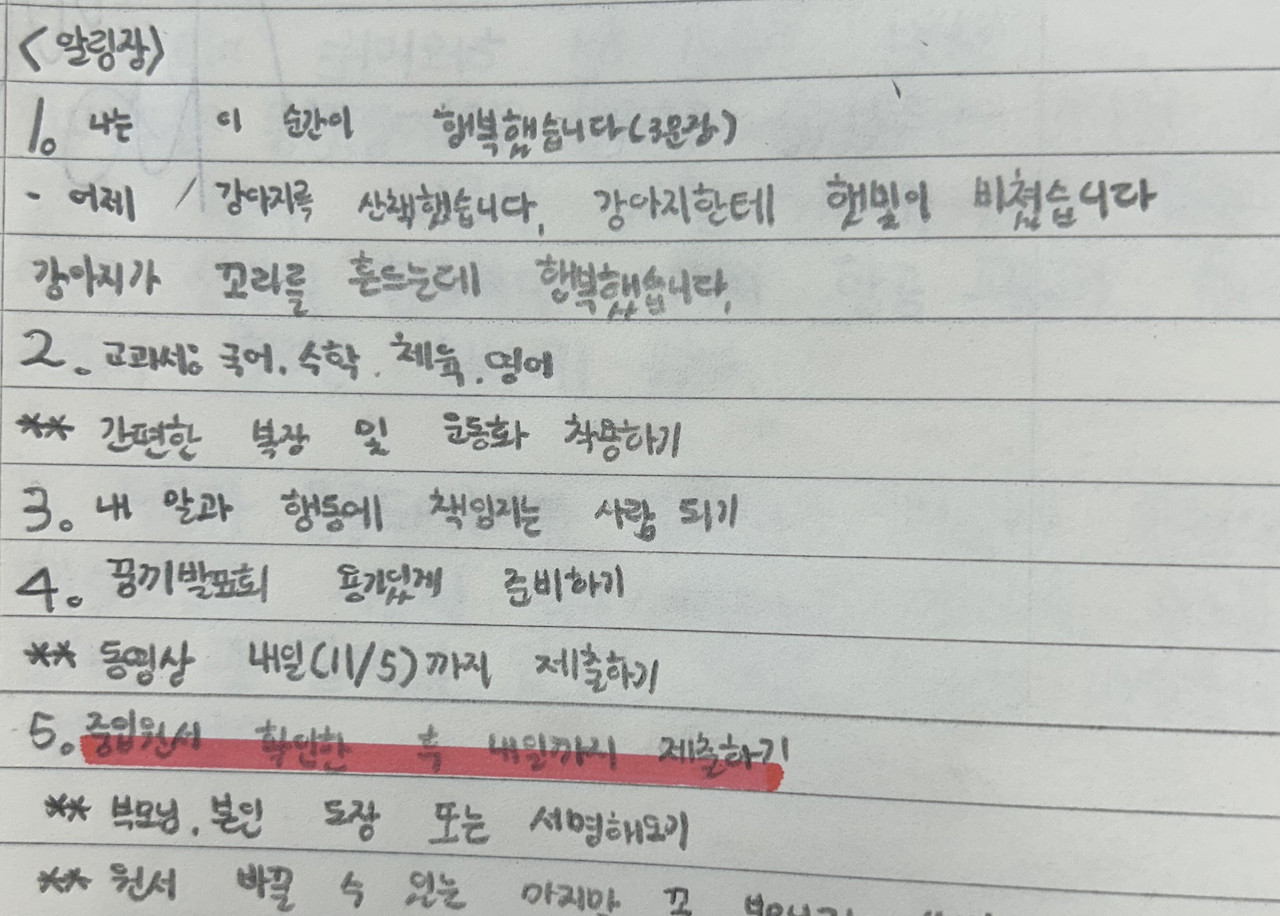 <알림장>
1. 나는 이 순간이 행복했습니다(3문장)
- 어제 / 강아지를 산책했습니다. 강아지한테 햇빛이 비쳤습니다
강아지가 꼬리를 흔드는데 행복했습니다.
2. 교과서: 국어. 수학. 체육. 영어
** 간편한 복장 및 운동화 착용하기
3. 내 말과 행동에 책임지는 사람 되기
4. 꿈끼발표회 용기있게 준비하기
** 동영상 내일(11/5)까지 제출하기
5. 중입원서 확인한 후 내일까지 제출하기
** 부모님. 본인 도장 또는 서명해오기
** 원서 바꿀 수 있는 마지막 꼭